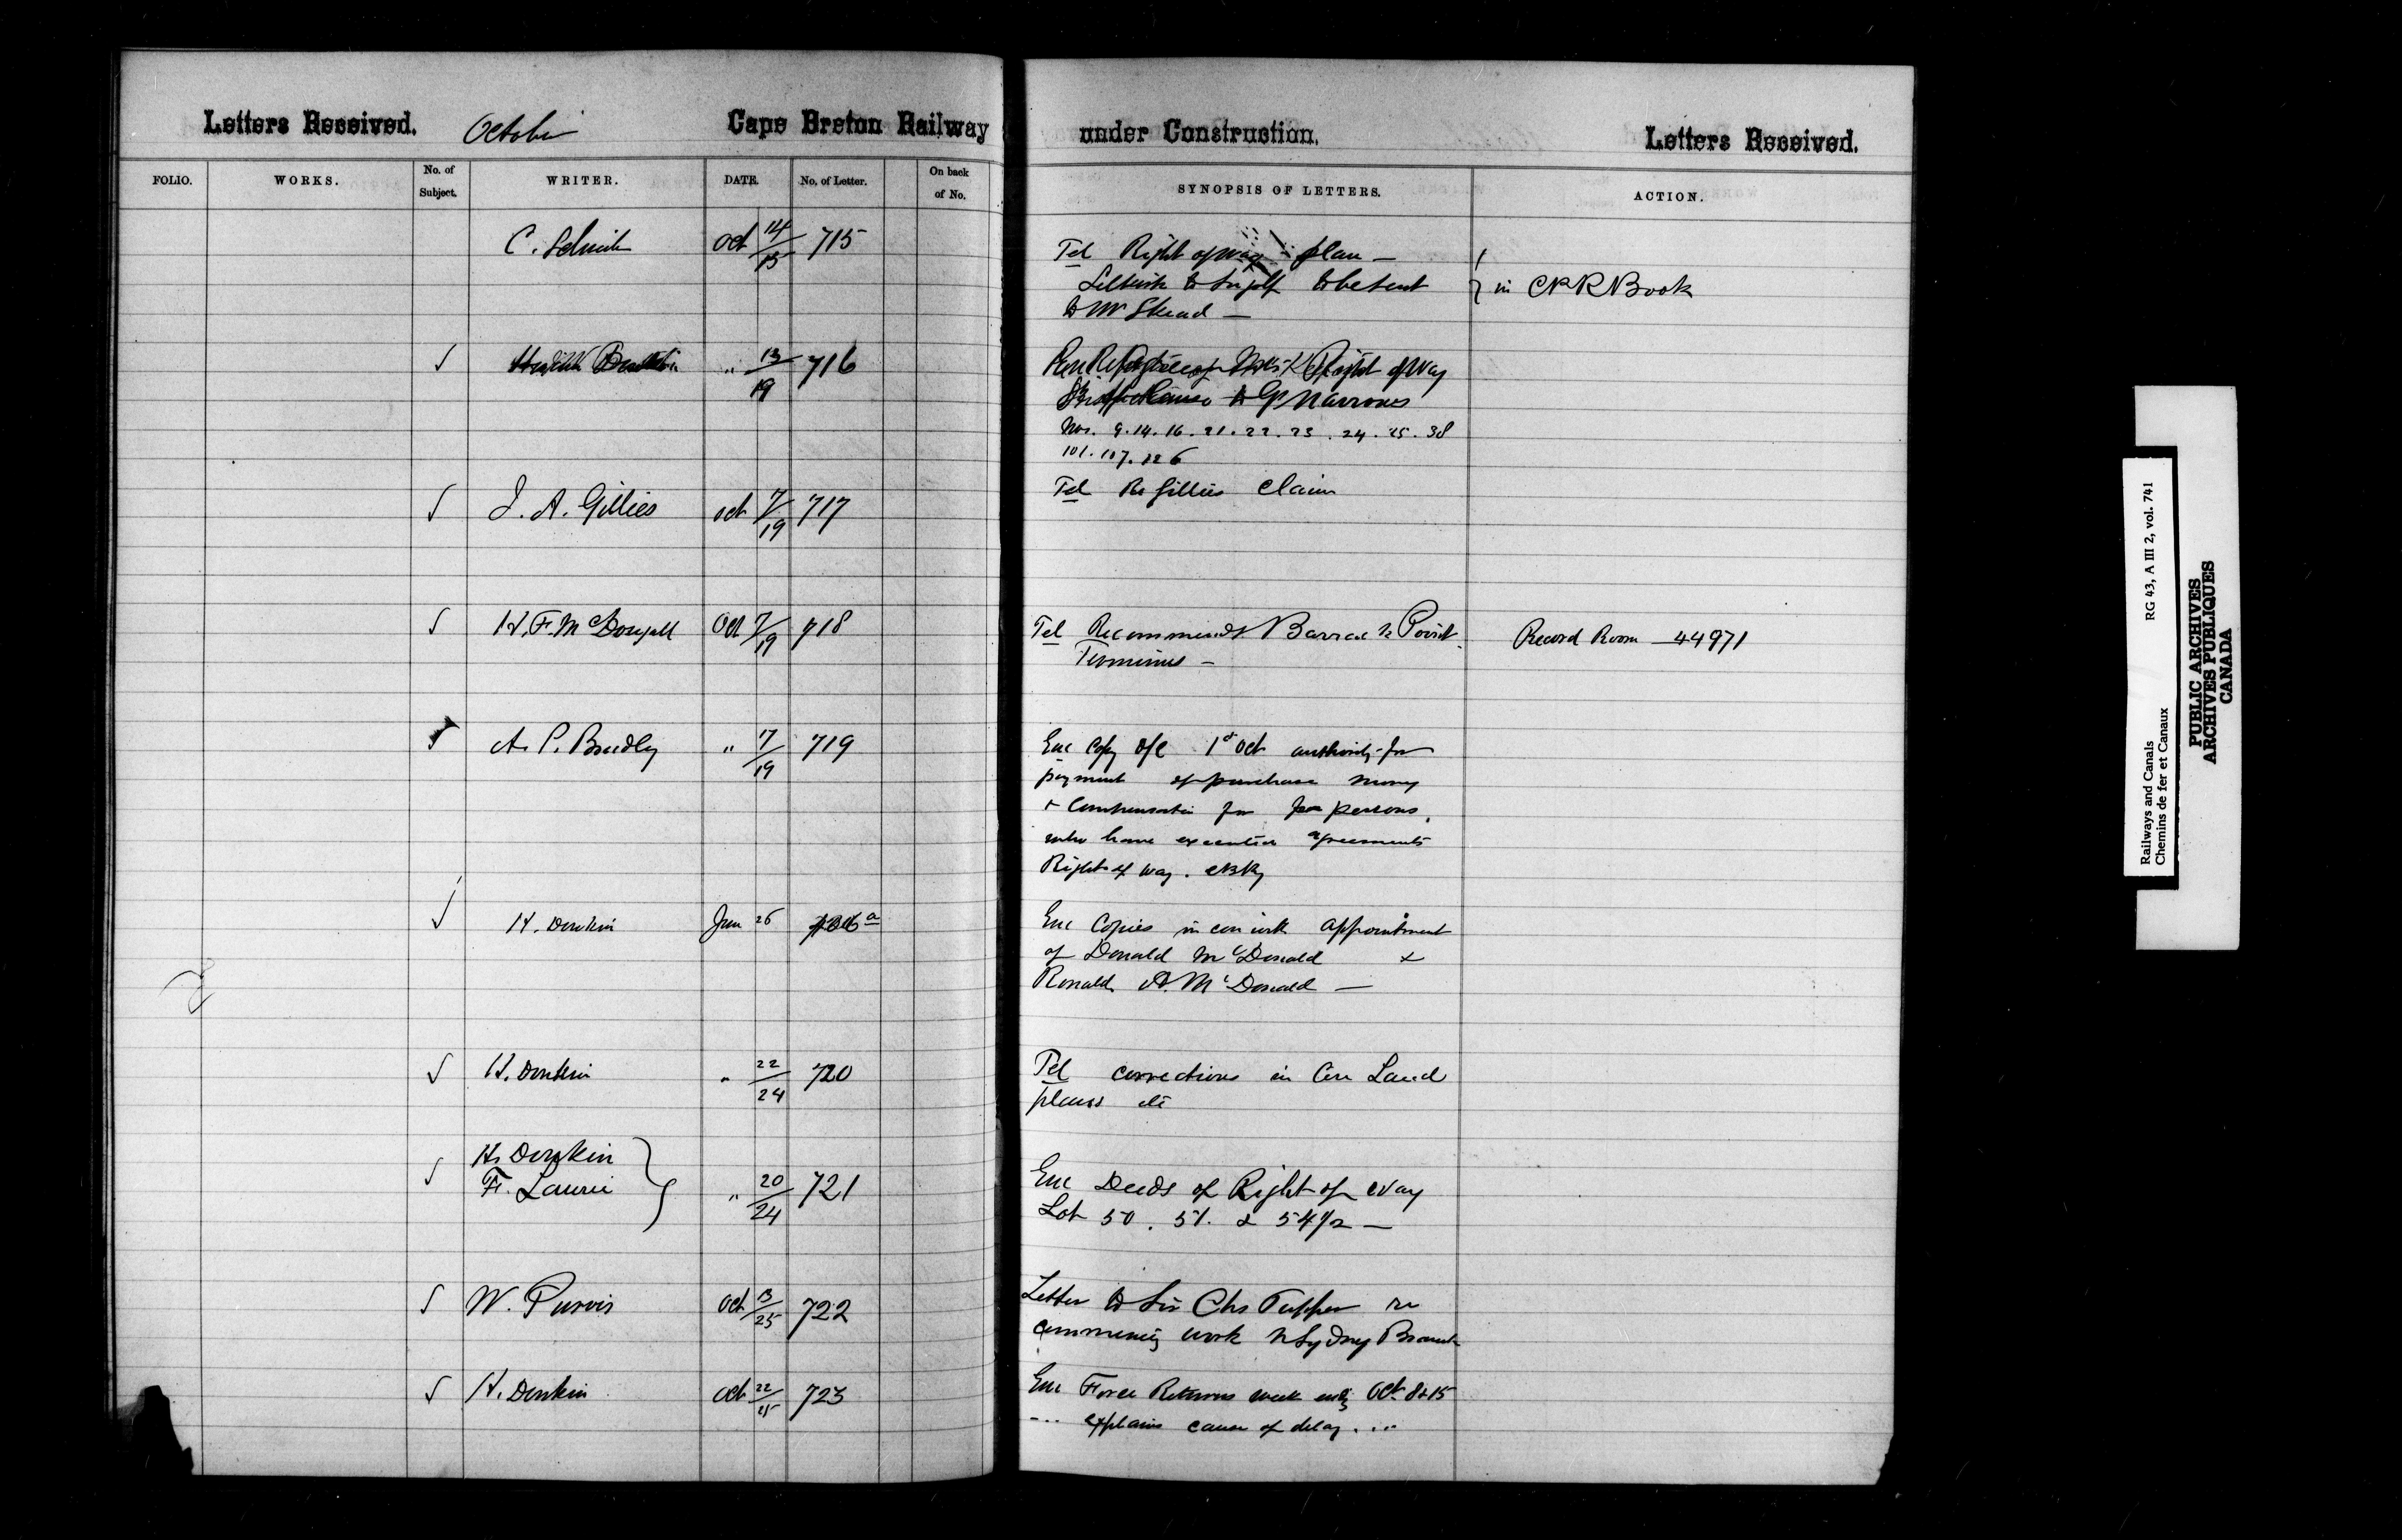 Letters Received. October Cape Breton Railway under Construction. Letters Received.
FOLIO. WORKS. No. of Subject. WRITER. DATE. No. of Letter. On back of No. SYNOPSIS OF LETTERS. ACTION.
C. Oct 14/15 715 Tel Right of way plan —
to be sent
to Mr Skead —
in CPR Book
" 13/19 716 Right of way
to G Narrows
Nos. 9. 14. 16. 21. 22. 23. 24. 25. 38
101. 107. 126
J. A. Gillies Oct 7/19 717 Tel Re Gillies Claim
H. F. McDougall Oct 7/19 718 Tel Recommends Barrack Point
Terminus —
Record Room — 44971
A. P. Bradley " 17/19 719 Enc Copy O/C 1st Oct authority for
payment of purchase money
& Compensation for persons
who have executed agreements
Right of way. CBRy
H. Donkin Jan 26 Enc Copies in con with appointment
of Donald McDonald &
Ronald A. McDonald —
H. Donkin " 22/24 720 Tel corrections in Land
plans etc
H. Donkin
F. Laurie " 20/24 721 Enc Deeds of Right of Way
Lot 50. 51. & 54 1/2 —
W. Purvis Oct 13/25 722 Letter to Sir Chs Tupper re
commencing work N Sydney Branch
H. Donkin Oct 22/25 723 Enc Force Returns week endg Oct. 8 & 15
explains cause of delay ...
RG 43, A III 2, vol. 741
Railways and Canals
Chemins de fer et Canaux
PUBLIC ARCHIVES
ARCHIVES PUBLIQUES
CANADA